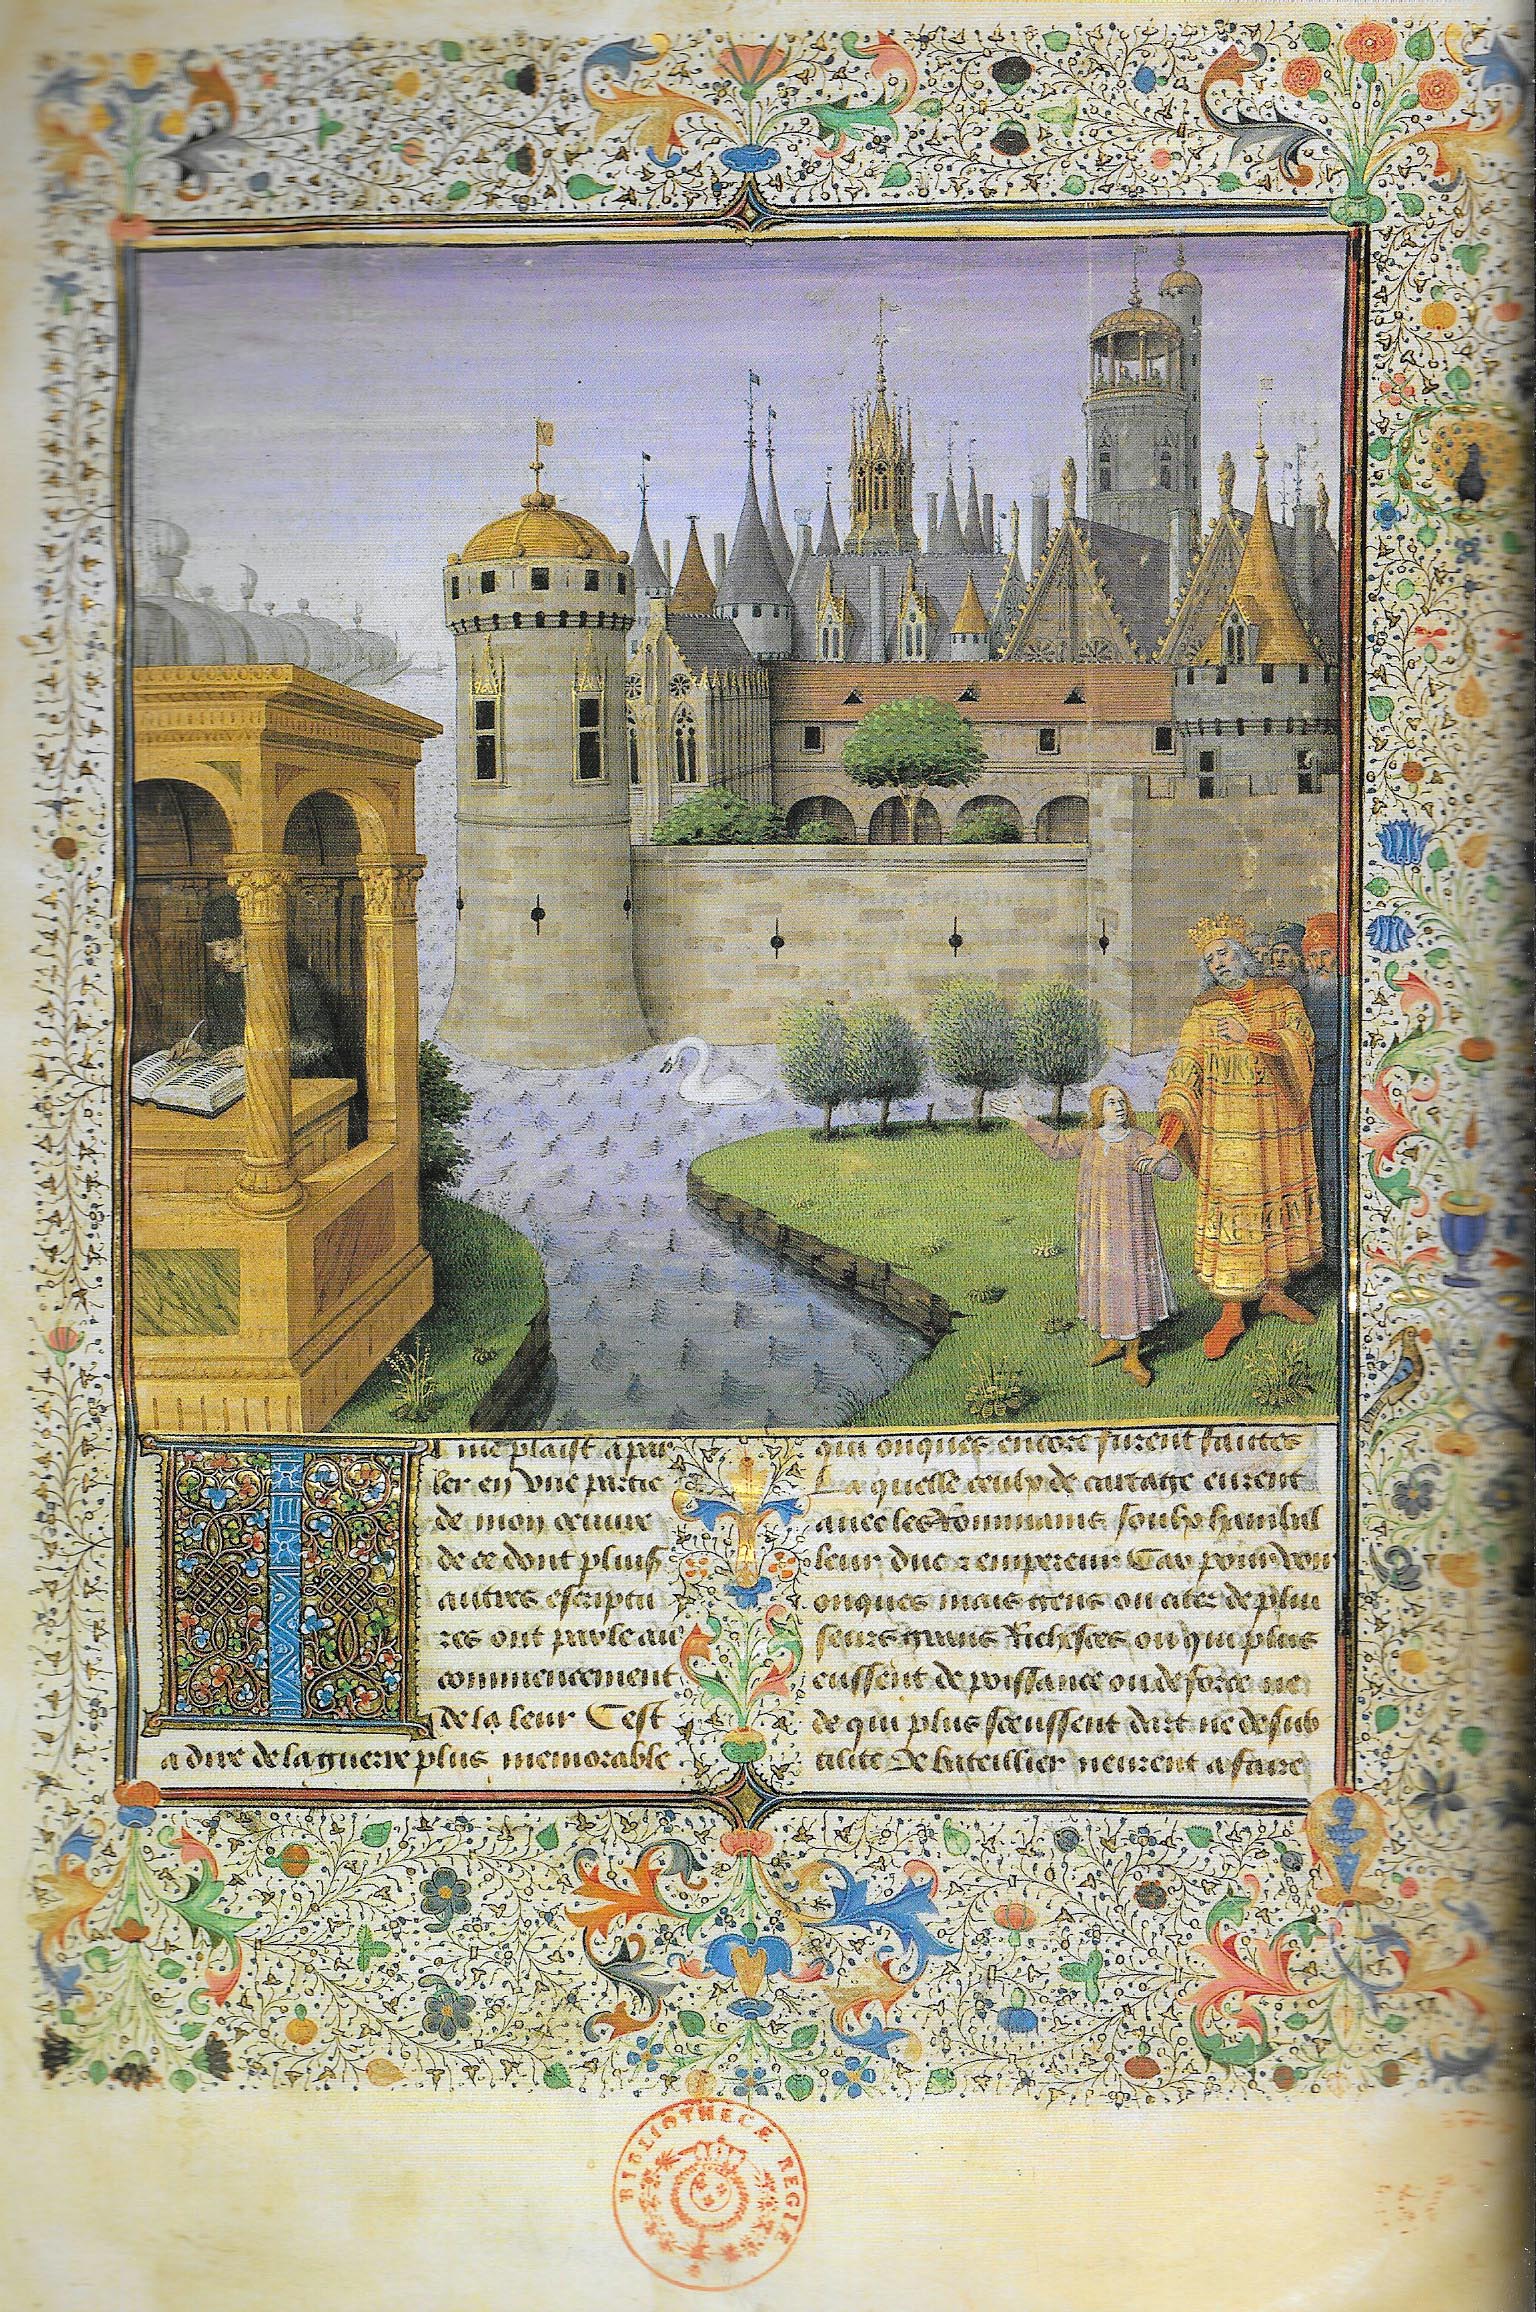 Il me plaist a par
ler en une partie
de mon œuure
de ce dont pluiss
autres escriptu
res ont parle au
commencement
de la leur Cest
a dire de la guerre plus memorable
qui onques encore furent faittes
La quelle ceulx de cartage eurent
auec les Rommains soubz hanibal
leur duc & empereur Car pour voir
onques mais gens ou citez de plui
seurs grans Richesses ou qui plus
eussent de poissance ou de force ne
de qui plus sceussent dart ne de sub
tilite de bateillier neurent a faire
BIBLIOTHECÆ REGIÆ